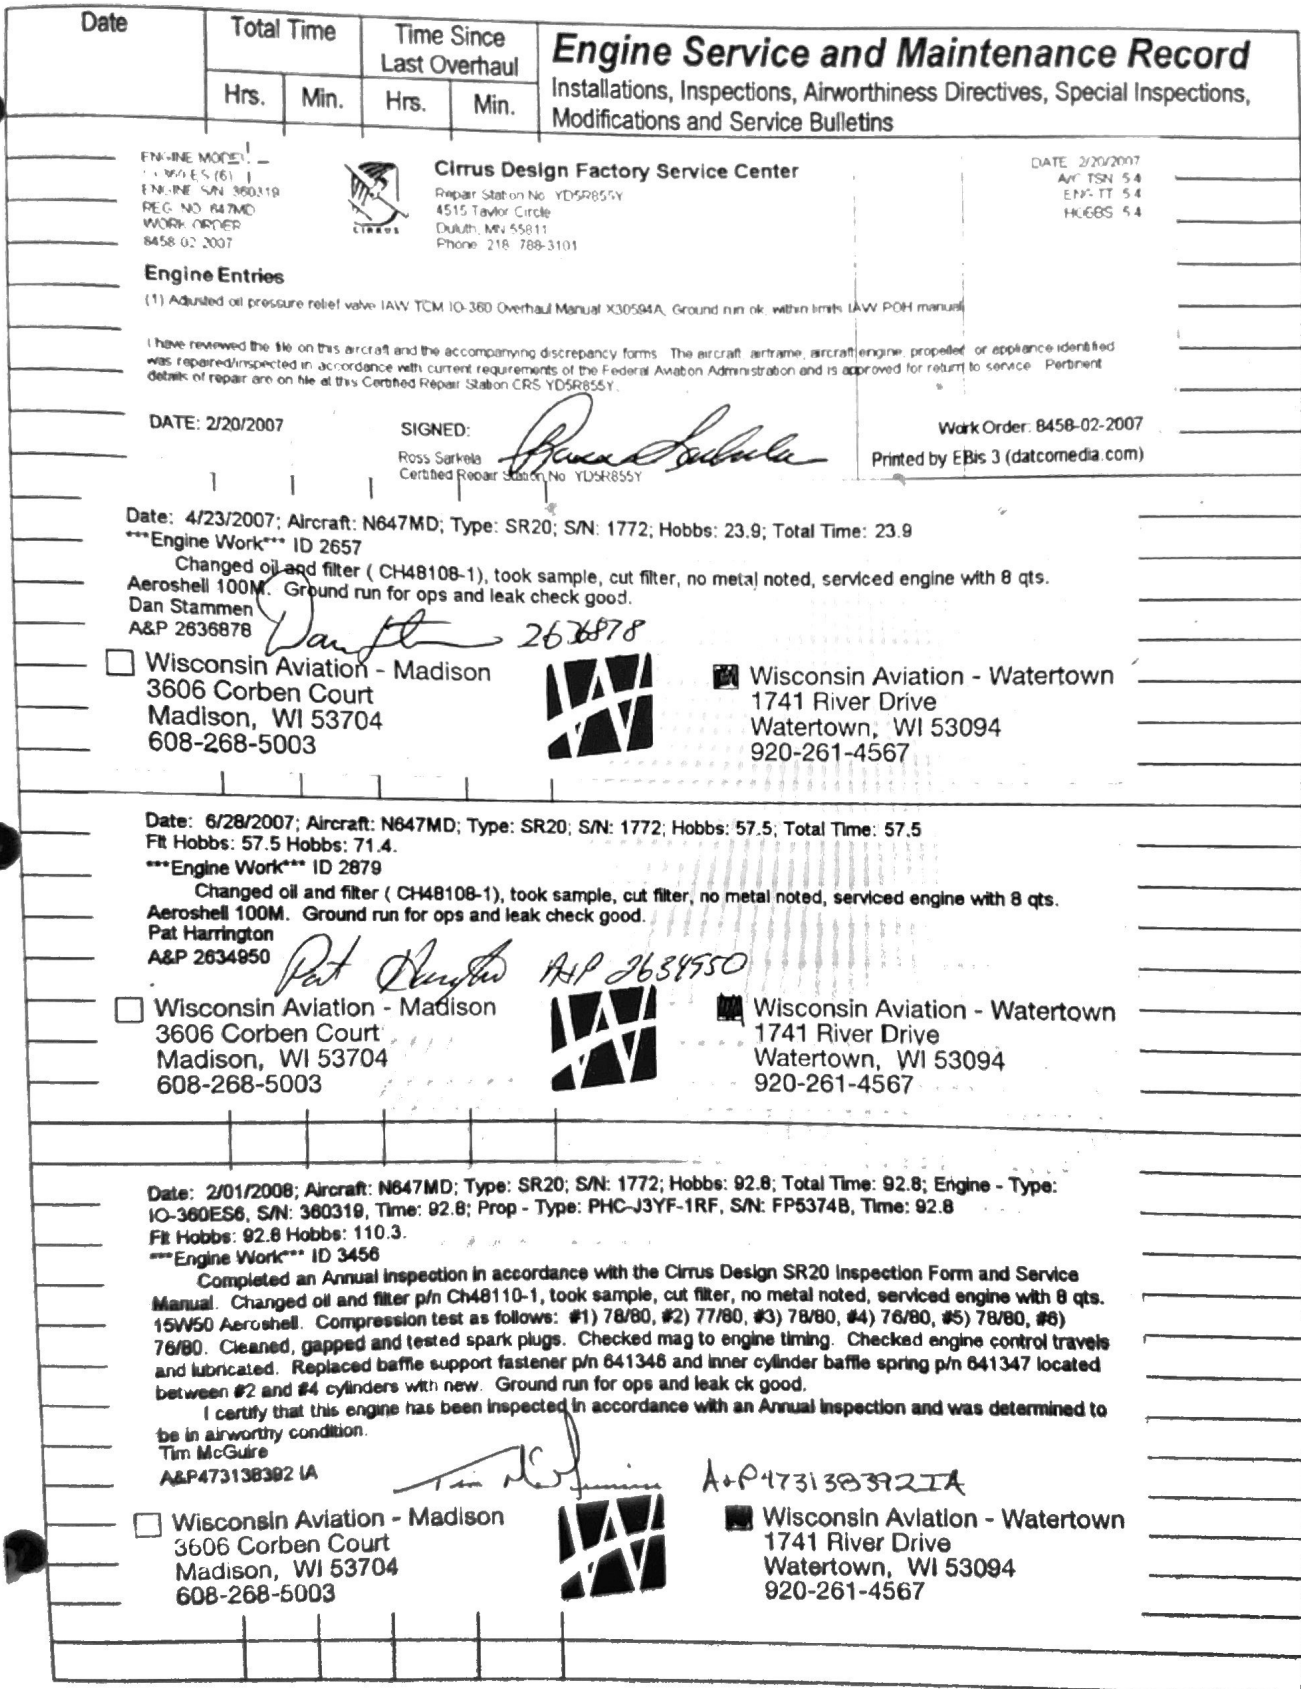 Date
Total Time
Time Since
Last Overhaul
Hrs.
Min.
Hrs.
Min.
Engine Service and Maintenance Record
Installations, Inspections, Airworthiness Directives, Special Inspections,
Modifications and Service Bulletins
ENGINE MODEL
ENGINE S/N 360319
REG NO 647MD
WORK ORDER
8458-02-2007
CIRRUS
Cirrus Design Factory Service Center
Repair Station No YD5R855Y
4515 Taylor Circle
Duluth, MN 55811
Phone 218 788-3101
DATE 2/20/2007
A/C TSN 5.4
ENG TT 5.4
HOBBS 5.4
Engine Entries
(1) Adjusted oil pressure relief valve IAW TCM IO-360 Overhaul Manual X30594A, Ground run ok, within limits IAW POH manual
I have reviewed the file on this aircraft and the accompanying discrepancy forms. The aircraft, airframe, aircraft engine, propeller, or appliance identified
was repaired/inspected in accordance with current requirements of the Federal Aviation Administration and is approved for return to service. Pertinent
details of repair are on file at this Certified Repair Station CRS YD5R855Y.
DATE: 2/20/2007
SIGNED:
Ross Sarkela
Certified Repair Station No YD5R855Y
Work Order: 8458-02-2007
Printed by EBis 3 (datcomedia.com)
Date: 4/23/2007; Aircraft: N647MD; Type: SR20; S/N: 1772; Hobbs: 23.9; Total Time: 23.9
***Engine Work*** ID 2657
Changed oil and filter ( CH48108-1), took sample, cut filter, no metal noted, serviced engine with 8 qts.
Aeroshell 100M. Ground run for ops and leak check good.
Dan Stammen
A&P 2636878
2636878
Wisconsin Aviation - Madison
3606 Corben Court
Madison, WI 53704
608-268-5003
Wisconsin Aviation - Watertown
1741 River Drive
Watertown, WI 53094
920-261-4567
Date: 6/28/2007; Aircraft: N647MD; Type: SR20; S/N: 1772; Hobbs: 57.5; Total Time: 57.5
Flt Hobbs: 57.5 Hobbs: 71.4.
***Engine Work*** ID 2879
Changed oil and filter ( CH48108-1), took sample, cut filter, no metal noted, serviced engine with 8 qts.
Aeroshell 100M. Ground run for ops and leak check good.
Pat Harrington
A&P 2634950
Pat Harrington A&P 2634950
Wisconsin Aviation - Madison
3606 Corben Court
Madison, WI 53704
608-268-5003
Wisconsin Aviation - Watertown
1741 River Drive
Watertown, WI 53094
920-261-4567
Date: 2/01/2008; Aircraft: N647MD; Type: SR20; S/N: 1772; Hobbs: 92.8; Total Time: 92.8; Engine - Type:
IO-360ES6, S/N: 360319, Time: 92.8; Prop - Type: PHC-J3YF-1RF, S/N: FP5374B, Time: 92.8
Flt Hobbs: 92.8 Hobbs: 110.3.
***Engine Work*** ID 3456
Completed an Annual Inspection in accordance with the Cirrus Design SR20 Inspection Form and Service
Manual. Changed oil and filter p/n Ch48110-1, took sample, cut filter, no metal noted, serviced engine with 8 qts.
15W50 Aeroshell. Compression test as follows: #1) 78/80, #2) 77/80, #3) 78/80, #4) 76/80, #5) 78/80, #6)
76/80. Cleaned, gapped and tested spark plugs. Checked mag to engine timing. Checked engine control travels
and lubricated. Replaced baffle support fastener p/n 641346 and inner cylinder baffle spring p/n 641347 located
between #2 and #4 cylinders with new. Ground run for ops and leak ck good.
I certify that this engine has been inspected in accordance with an Annual Inspection and was determined to
be in airworthy condition.
Tim McGuire
A&P473138392 IA
Tim McGuire A&P473138392IA
Wisconsin Aviation - Madison
3606 Corben Court
Madison, WI 53704
608-268-5003
Wisconsin Aviation - Watertown
1741 River Drive
Watertown, WI 53094
920-261-4567